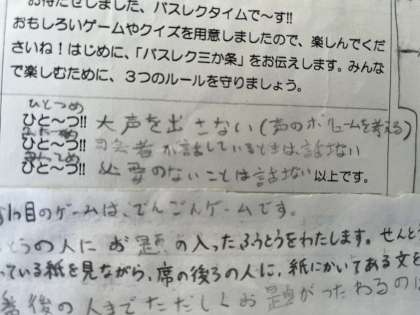 お待たせしました、バスレクタイムで〜す!!
おもしろいゲームやクイズを用意しましたので、楽しんでくだ
さいね！はじめに、「バスレク三か条」をお伝えします。みんな
で楽しむために、３つのルールを守りましょう。
ひとつめ
ひと〜つ!! 大声を出さない(声のボリュームを考える)
ふたつめ
ひと〜つ!! 司会者が話しているときは話さない
みっつめ
ひと〜つ!! 必要のないことは話さない 以上です。
1つ目のゲームは、でんごんゲームです。
とうの人にお題の入ったふうとうをわたします。せんとう
っている紙を見ながら、席の後ろの人に、紙にかいてある文を
番後の人までただしくお題がつたわるのに